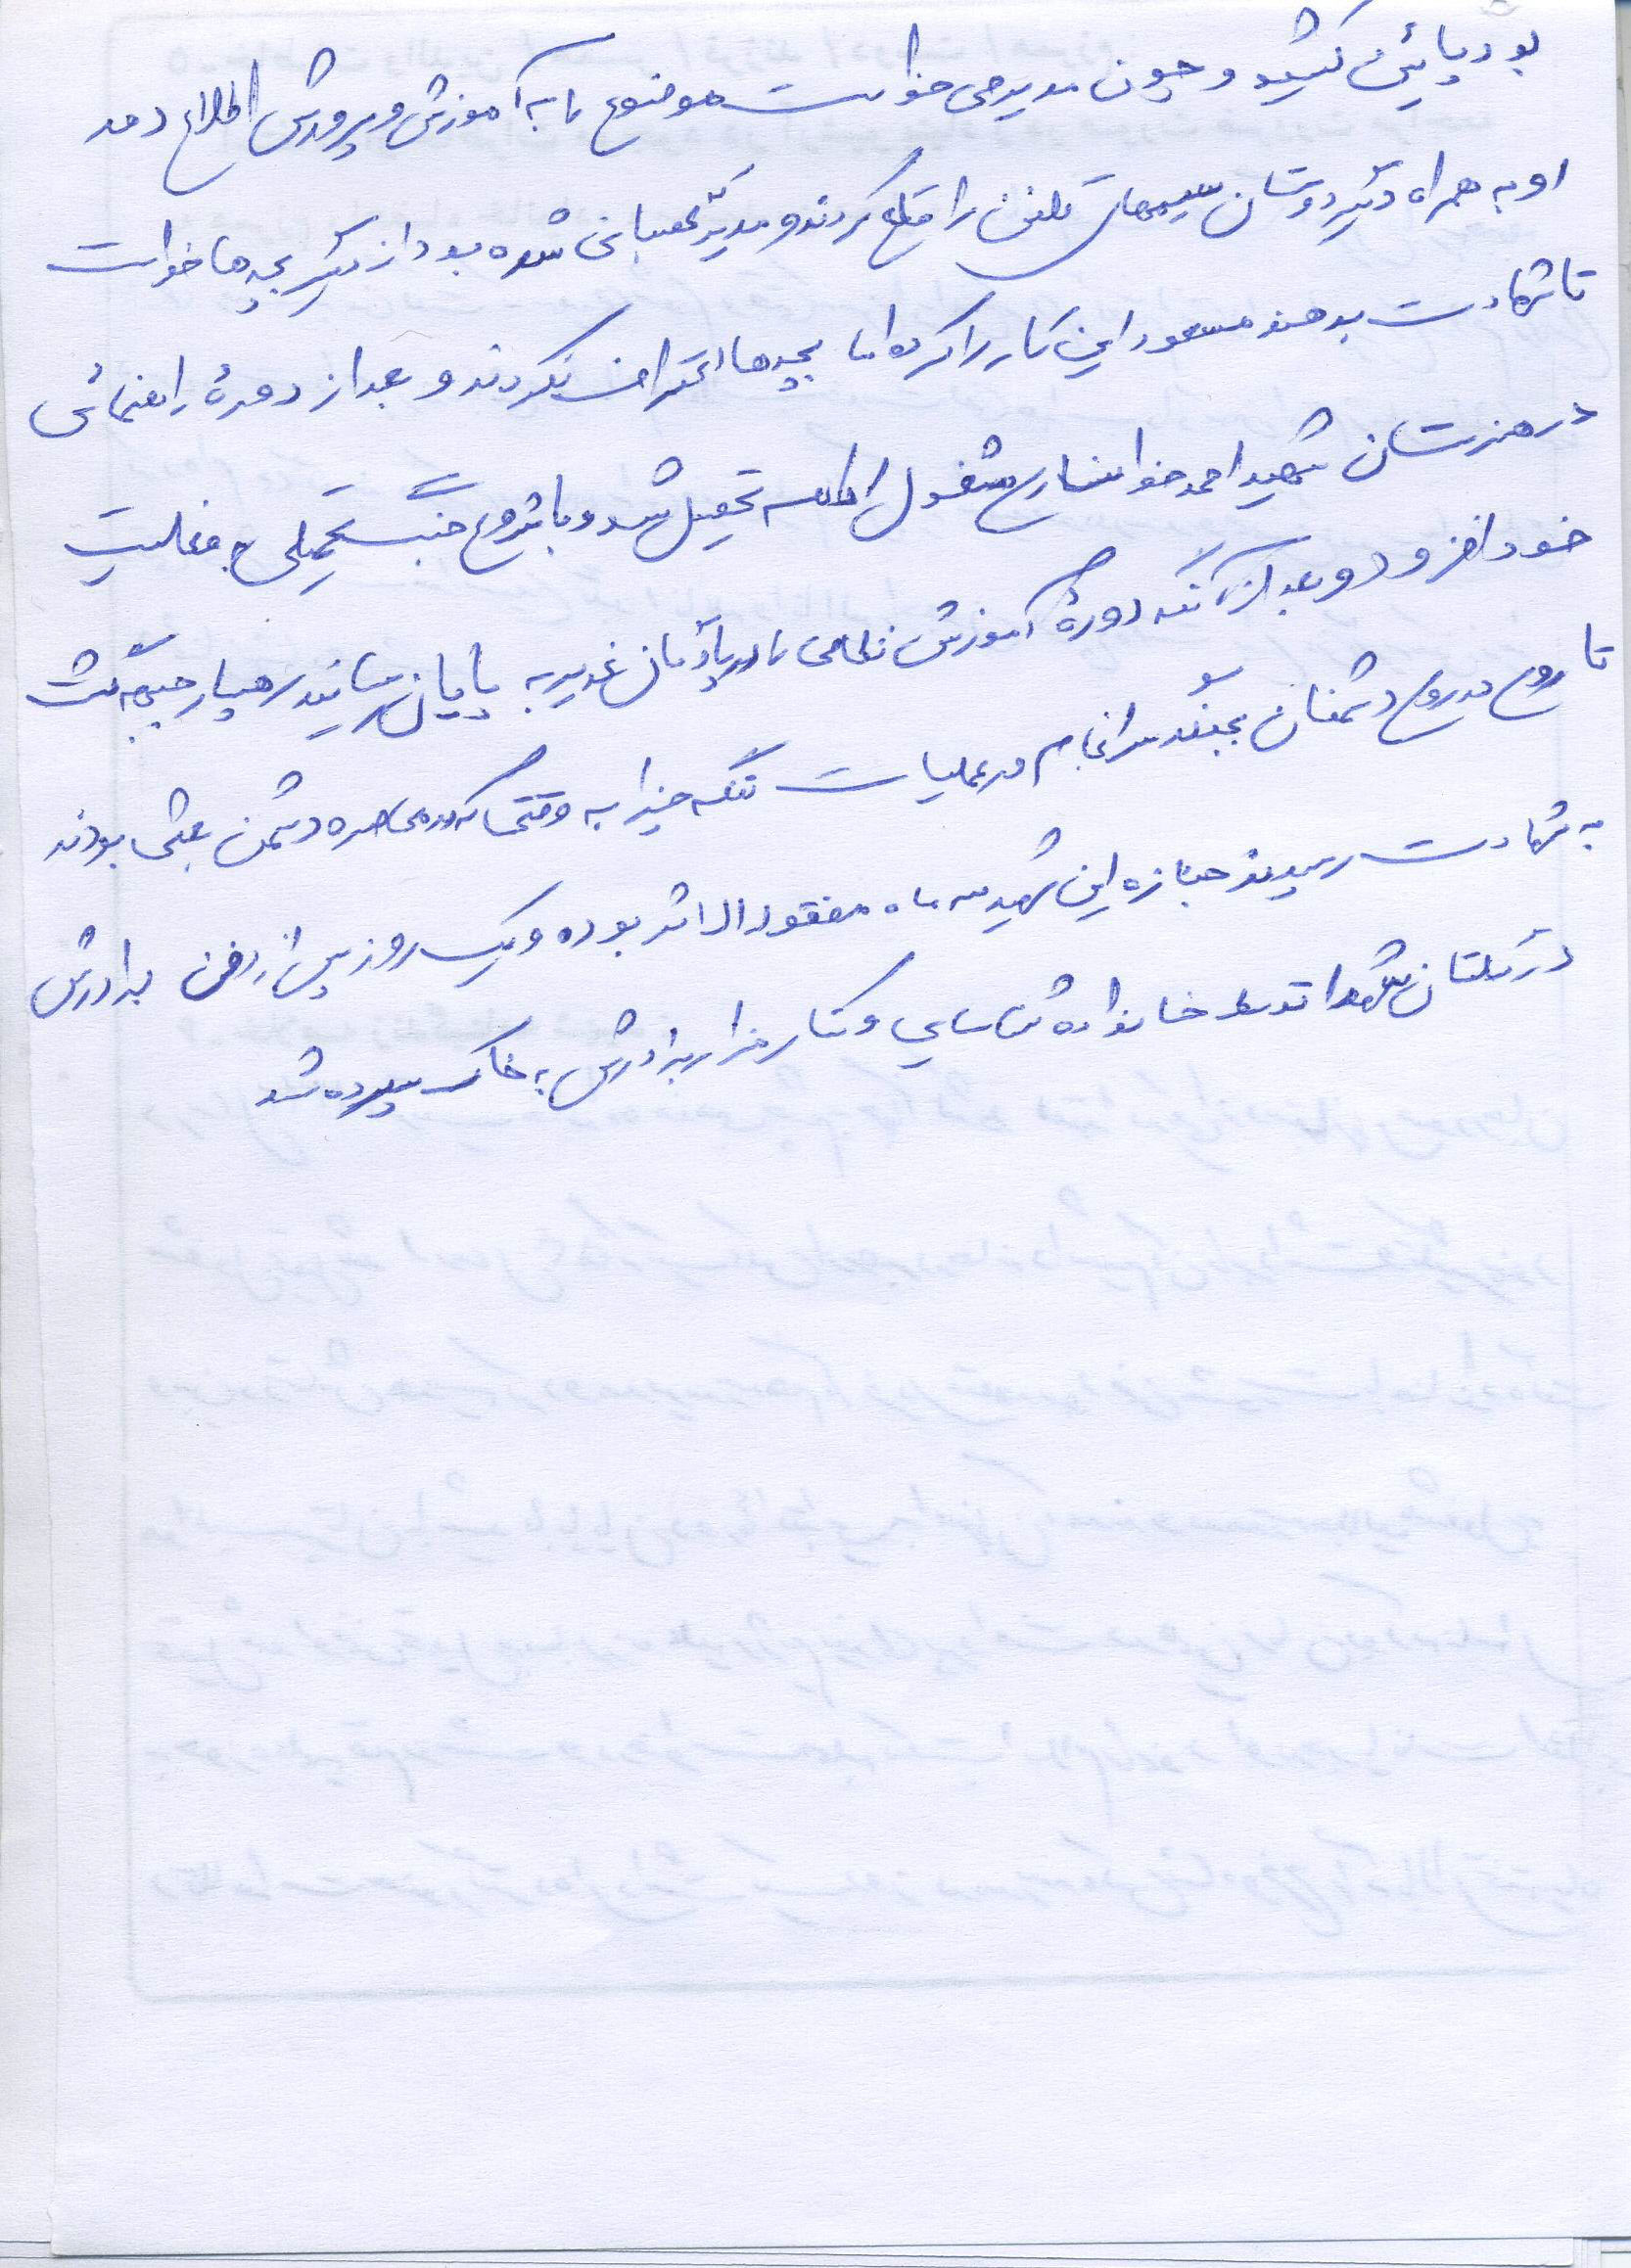 بود پایین کشید و چون مدیر می خواست موضوع را به آموزش و پرورش اطلاع دهد
او به همراه دیگر دوستان سیمهای تلفن را قطع کردند و مدیر عصبانی شده بود از دیگر بچه ها خواست
تا شهادت بدهند مسعود این کار را کرده اما بچه ها اعتراف نکردند و بعد از دورهٔ راهنمائی
در هنرستان شهید احمد خوانساری مشغول ادامه تحصیل شد و با شروع جنگ تحمیلی بر فعالیت
خود افزود و بعد از آنکه دورهٔ آموزش نظامی را در پادگان غدیر به پایان رسانید رهسپار جبهه گشت
تا رو در روی دشمنان بجنگد سرانجام در عملیات تنگه چزابه وقتی که در محاصره دشمن بعثی بودند
به شهادت رسیدند جنازه این شهید سه ماه مفقودالاثر بوده و یک روز پس از دفن برادرش
در گلستان شهدا توسط خانواده شناسایی و کنار مزار برادرش به خاک سپرده شد